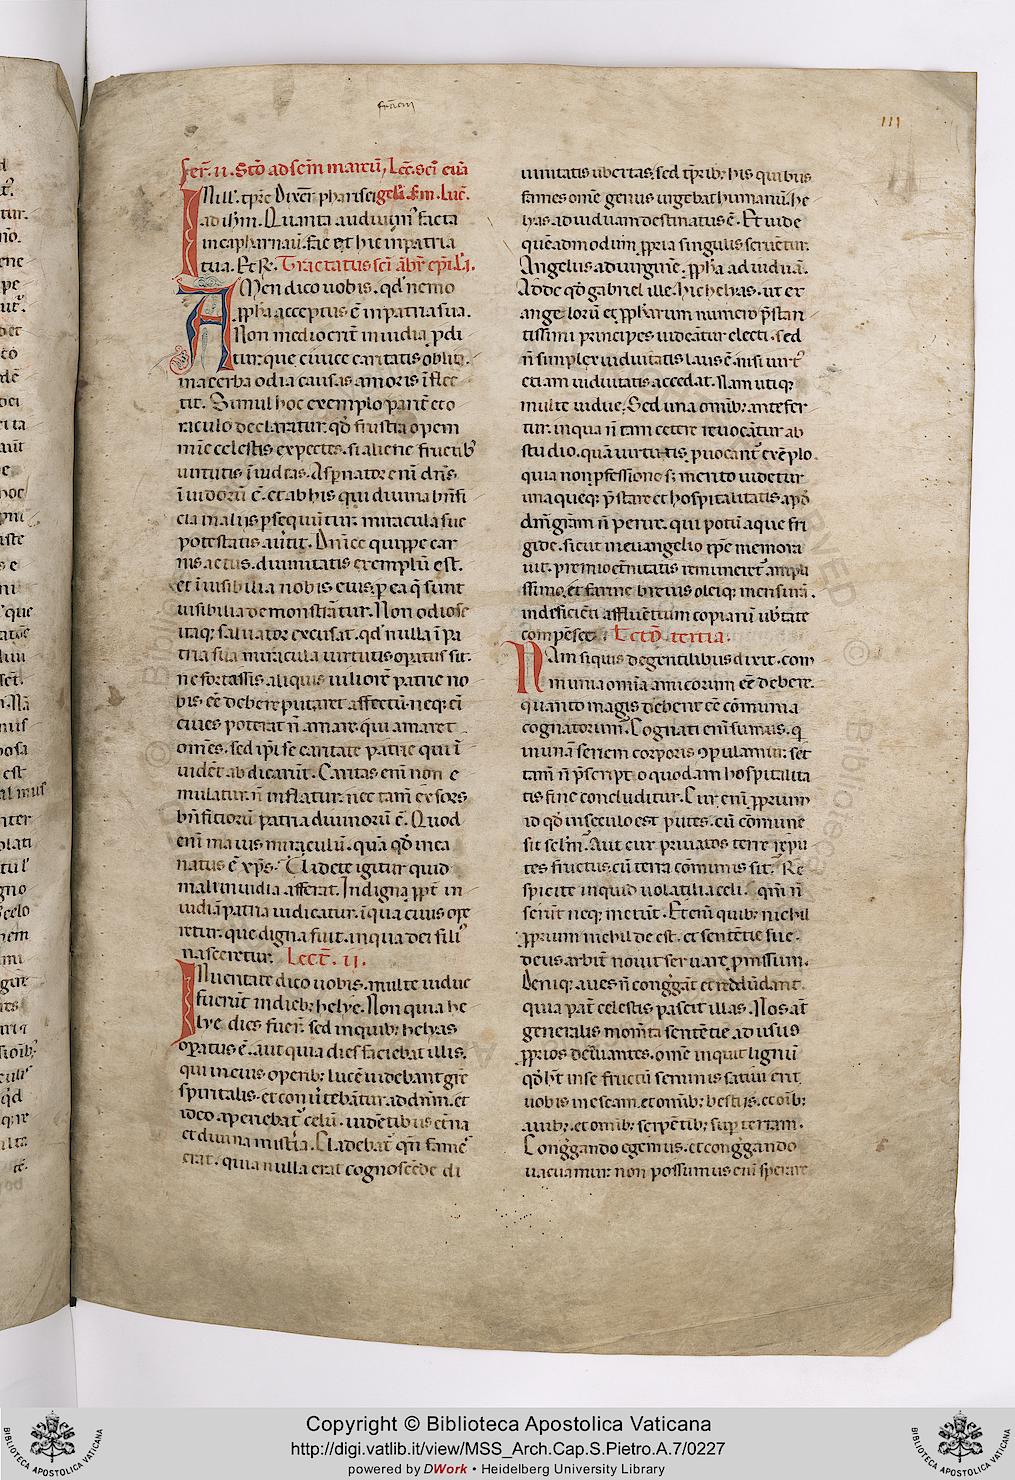 fr̄aem
111
Fer̄. ii. Stō ad sc̄m marcū, Lec̄. sc̄i eūā
IN ill'. tp̄re Dixer̄ pharisei gelī. s̄m. Luc̄.
ad ih̄m. Quanta audiuim' facta
in capharnaū. fac et hic in patria
tua. Et R̄. Tractatus sc̄i āb̄r ep̄i. L. i.
AMen dico uobis. qd' nemo
ꝓph̄a acceptus ē in patria sua.
Non mediocrit̄ inuidia ꝓdi
tur. que ciuice caritatis oblita.
in acerba odia causas amoris īflec
tit. Simul hoc exemplo parit̄ et o
raculo declaratur. qd̄ frustra opem
mīe celestis expectes. si aliene fructib'
uirtutis īuideas. Asp̄nator enī dn̄s
īuidorū ē. et ab his qui diuina bn̄fi
cia maliṡ ꝑsequūtur. miracula sue
potestatis au̇tit. Dn̄ice quippe car
nis actus. diuinitatis exemplū est.
et īuisibilia nobis eius. ꝑ ea q̄ sunt
uisibilia demonstrātur. Non odiose
itaq; saluator excusat. qd' nulla ī pa
tria sua miracula uirtutis opatus sit.
ne fortassis aliquis uiliorē patrie no
bis eē debere putaret affectū. neq; eī
ciues poterat n̄ amare. qui amaret
om̄es. sed ip̄i se caritate patrie qui ī
uidēt abdicarūt. Caritas enī non e
mulatur. n̄ inflatur. nec tam̄ exsors
bn̄fitiorū patria diuinorū ē. Quod
enī maius miraculū. quā qd̄ in ea
natus ē xp̄s? Uidete igitur quid
mali inuidia afferat. Indigna ꝓpt̄ in
uidiā patria iudicatur. ī qua ciuis ope
retur. que digna fuit. in qua dei fili'
nasceretur. Lect̄. ij.
IN ueritate dico uobis. multe uidue
fuerūt in dieb; helye. Non quia he
lye dies fuer̄. sed in quib; helyas
opatus ē. aut quia dies faciebat illis.
qui in eius operib; lucē uidebant gr̄e
spiritalis. et conu̇tebātur ad dn̄m. et
ideo aperiebat' celū. uidētibus etn̄a
et diuina mistia. Claudebat' qn̄ fames
erat. quia nulla erat cognoscēde di
uinitatis ubertas. sed tp̄rib; his quibus
fames om̄e genus urgebat humanū. he
lyas ad uiduam destinatus ē. Et uide
quēadmodum ꝓpria singulis seruetur.
Angelus ad uirginē. ꝓph̄a ad uiduā.
Adde qd̄ gabriel ille. hic helyas. ut ex
angelorū et ꝓph̄arum numero p̄stan
tissimi principes uideātur electi. sed
n̄ simplex uiduitatis laus ē. nisi uirt'
etiam uiduitatis accedat. Nam utiq;
multe uidue. Sed una omīb; antefer
tur. in qua n̄ tam cetere reuocātur ab
studio. quā uirtutis ꝓuocant' exēplo.
quia non ꝓfessione s; merito uidetur
unaqueq; p̄stare et hospitalitatis apd̄
dn̄i gr̄am n̄ perire. qui potū aque fri
gide. sicut in euangelio ip̄e memora
uit. premio et̄nitatis remuneret' ampli
ssimo. et farine breuis oleiq; mensurā.
indeficiēti affluētium copiarū ub̄tate
compēset. Lectō tertia.
NAm siquis de gentilibus dixit. com
munia om̄ia amicorum eē debere.
quanto magis debent eē cōmunia
cognatorum. Cognati enī sumus. q̄
in unā seriem corporis ꝯpulamur. set
tam̄ n̄ p̄scripto quodam hospitalita
tis fine concluditur. Cur enī ꝓprium
id qd̄ in seculo est putes. cū cōmune
sit sclm̄? Aut cur priuatos terre repu
tes fructus. cū terra cōmunis sit? Re
spicite inquid uolatilia celi. qm̄ n̄
serūt neq; metūt. Et enī quib; nichil
ꝓprium nichil deest. et sentētie sue.
deus arbit̄ nouit seruare ꝓmissum.
Deniq; aues n̄ cong̊gāt et redūdant.
quia pat̄ celestis pascit illas. Nos aūt
generalis mom̄ta sentētie. ad usus
ꝓprios deriuantes. om̄e inquit lignū
qd̄ h̄t in se fructū seminis satiui erit
uobis in escam. et omīb; bestiis. et oīb;
auib;. et omīb; serpētib; sup terram.
Cong̊gando egemus. et cong̊gando
uacuamur. non possumus enī sperare
Copyright © Biblioteca Apostolica Vaticana
http://digi.vatlib.it/view/MSS_Arch.Cap.S.Pietro.A.7/0227
powered by DWork • Heidelberg University Library
BIBLIOTECA APOSTOLICA VATICANA
BIBLIOTECA APOSTOLICA VATICANA